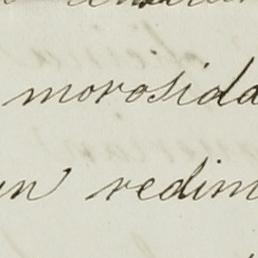 morosida
un redim